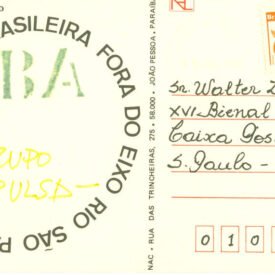 ASILEIRA FORA DO EIXO RIO SÃO P
BA
UPO
PULSA
NAC - RUA DAS TRINCHEIRAS, 275 - 58.000 - JOÃO PESSOA, PARAÍB
Sr. Walter
XVI-Bienal
Caixa Pos
S. Paulo -
0 1 0